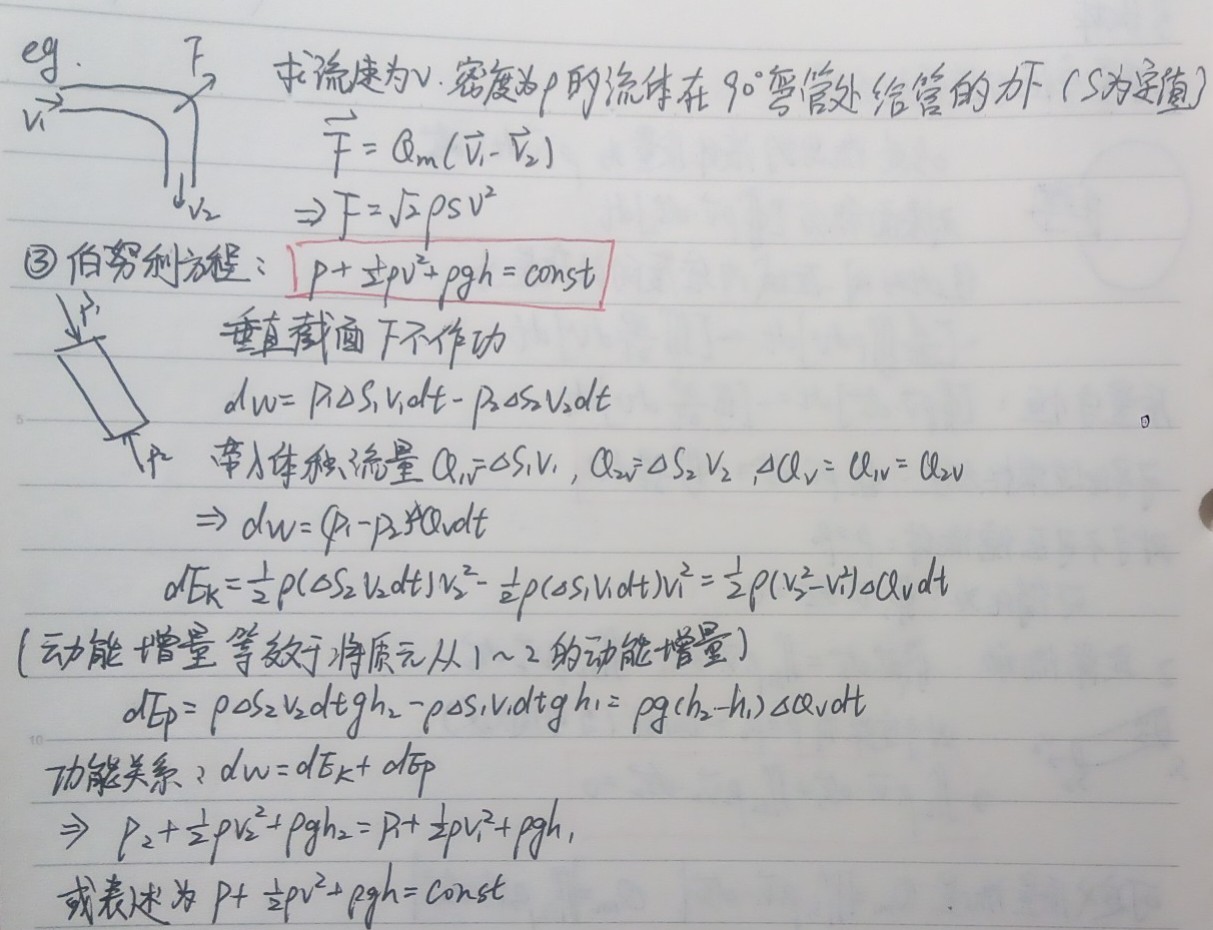 eg.
F
V₁
V₂
求流速为v.密度为ρ的流体在90°弯管处给管的力F (S为定值)
F⃗ = Qm(V⃗₁-V⃗₂)
⇒ F = √2 ρSV²
③ 伯努利方程: P + ½ρv² + ρgh = const
P₁
P₂
垂直截面 F不作功
dW = P₁ΔS₁V₁dt - P₂ΔS₂V₂dt
带入体积流量 Q₁ᵥ=ΔS₁V₁ , Q₂ᵥ=ΔS₂V₂ , ΔQᵥ = Q₁ᵥ = Q₂ᵥ
⇒ dW = (P₁-P₂)ΔQᵥdt
dEₖ = ½ρ(ΔS₂V₂dt)V₂² - ½ρ(ΔS₁V₁dt)V₁² = ½ρ(V₂²-V₁²)ΔQᵥdt
(动能增量等效于将质元从1~2的动能增量)
dEp = ρΔS₂V₂dtgh₂ - ρΔS₁V₁dtgh₁ = ρg(h₂-h₁)ΔQᵥdt
功能关系: dW = dEₖ + dEp
⇒ P₂ + ½ρV₂² + ρgh₂ = P₁ + ½ρV₁² + ρgh₁
或表述为 P + ½ρv² + ρgh = const
5
10